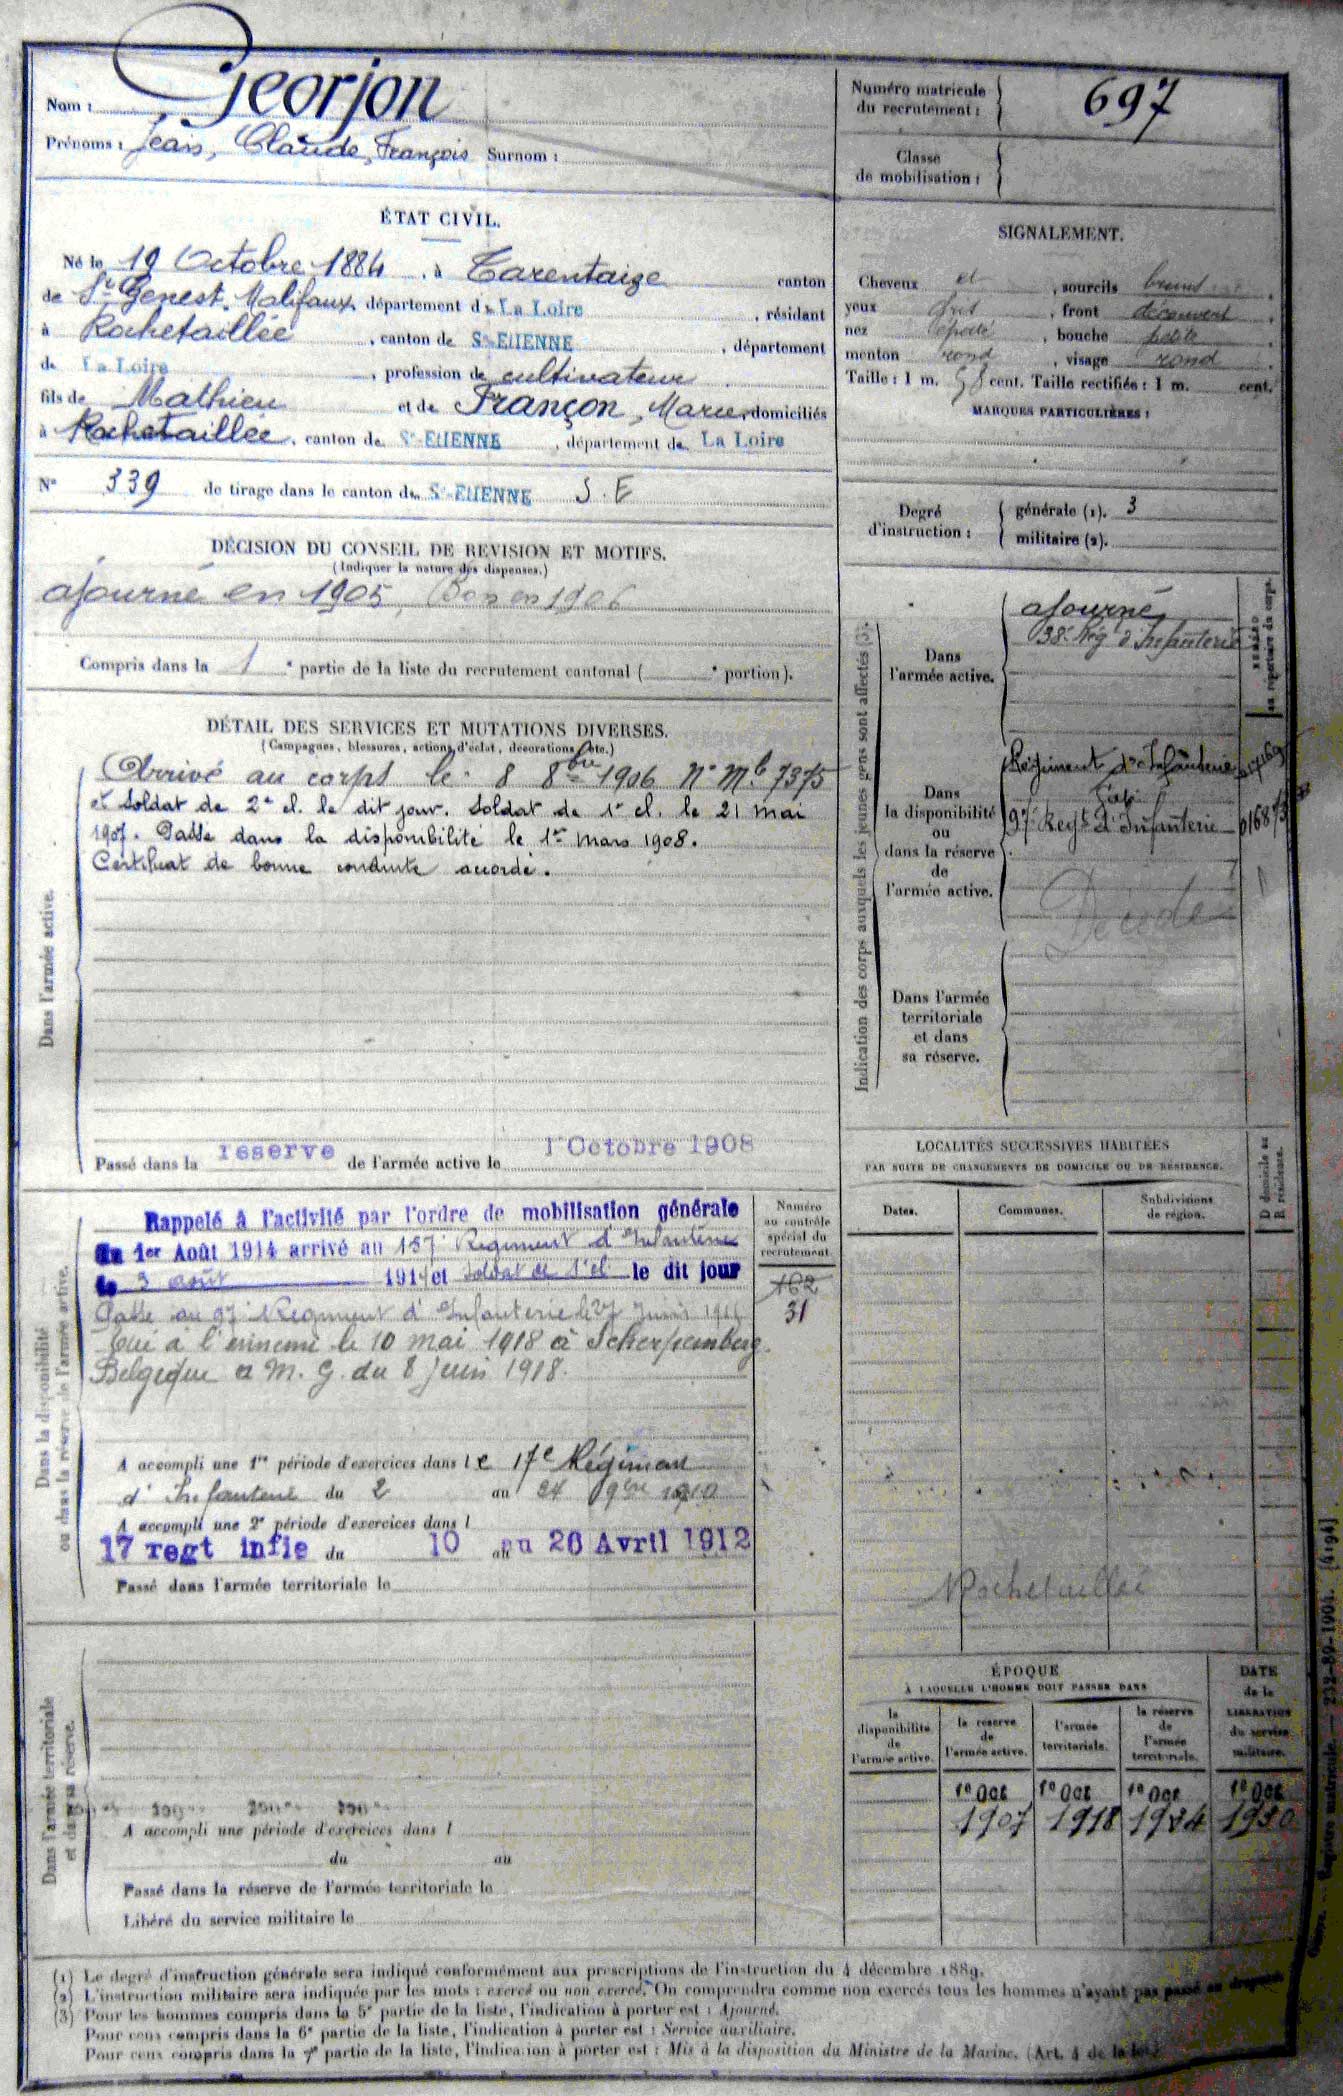 Nom : Georjon
Prénoms : Jean, Claude, François Surnom :
Numéro matricule du recrutement : 697
Classe de mobilisation :
ÉTAT CIVIL.
Né le 19 Octobre 1884, à Tarentaize canton
de St Genest Malifaux, département de La Loire, résidant
à Rochetaillée, canton de St-ETIENNE, département
de La Loire, profession de cultivateur
fils de Mathieu et de Françon, Marie, domiciliés
à Rochetaillée, canton de St-ETIENNE, département de La Loire
N° 339 de tirage dans le canton de St-ETIENNE S. E
SIGNALEMENT.
Cheveux et, sourcils bruns
yeux gris, front découvert,
nez épaté, bouche petite
menton rond, visage rond
Taille : 1 m. 58 cent. Taille rectifiée : 1 m. cent.
MARQUES PARTICULIÈRES :
Degré d'instruction :
générale (1). 3
militaire (2).
DÉCISION DU CONSEIL DE REVISION ET MOTIFS.
(Indiquer la nature des dispenses.)
ajourné en 1905, Bon en 1906
Compris dans la 1e partie de la liste du recrutement cantonal ( e portion).
DÉTAIL DES SERVICES ET MUTATIONS DIVERSES.
(Campagnes, blessures, actions d'éclat, décorations, etc.)
Dans l'armée active.
Arrivé au corps le 8 8bre 1906 N° Mle 7375
et soldat de 2e cl. le dit jour. Soldat de 1e cl. le 21 mai
1907. Passé dans la disponibilité le 1er mars 1908.
Certificat de bonne conduite accordé.
Passé dans la reserve de l'armée active le 1 Octobre 1908
Indication des corps auxquels les jeunes gens sont affectés (3).
NUMÉRO au répertoire du corps.
Dans l'armée active.
ajourné
38e Rég d'Infanterie
Dans la disponibilité ou dans la réserve de l'armée active.
Régiment d'Infanterie
Gap
97e Regt d'Infanterie
Décédé
Dans l'armée territoriale et dans sa réserve.
Dans la disponibilité ou dans la réserve de l'armée active.
Numéro au contrôle spécial du recrutement.
162
31
Rappelé à l'activité par l'ordre de mobilisation générale
du 1er Août 1914 arrivé au 157e Régiment d'Infanterie
le 3 août 1914 et soldat de 1e cl le dit jour
Passé au 97e Régiment d'Infanterie le 27 Juin 1916
Tué à l'ennemi le 10 mai 1918 à Scherpenberg
Belgique a M. G. du 8 juin 1918.
A accompli une 1re période d'exercices dans le 17e Régiment
d'Infanterie du 2 au 24 9bre 1910
A accompli une 2e période d'exercices dans l
17 regt infie du 10 au 26 Avril 1912
Passé dans l'armée territoriale le
LOCALITÉS SUCCESSIVES HABITÉES
PAR SUITE DE CHANGEMENTS DE DOMICILE OU DE RÉSIDENCE.
Dates. Communes. Subdivisions de région. D domicile ou R résidence.
Rochetaillée
Dans l'armée territoriale et dans sa réserve.
A accompli une période d'exercices dans l
du au
Passé dans la réserve de l'armée territoriale le
Libéré du service militaire le
ÉPOQUE
À LAQUELLE L'HOMME DOIT PASSER DANS
DATE de la LIBÉRATION du service militaire.
la disponibilité de l'armée active.
la réserve de l'armée active.
l'armée territoriale.
la réserve de l'armée territoriale.
1er Oct 1er Oct 1er Oct 1er Oct
1907 1918 1924 1930
(1) Le degré d'instruction générale sera indiqué conformément aux prescriptions de l'instruction du 4 décembre 1889.
(2) L'instruction militaire sera indiquée par les mots : exercé ou non exercé. On comprendra comme non exercés tous les hommes n'ayant pas passé au drapeau
(3) Pour les hommes compris dans la 5e partie de la liste, l'indication à porter est : Ajourné.
Pour ceux compris dans la 6e partie de la liste, l'indication à porter est : Service auxiliaire.
Pour ceux compris dans la 7e partie de la liste, l'indication à porter est : Mis à la disposition du Ministre de la Marine. (Art. 4 de la loi.)
Registre matricule. — 232-89-1904. [4194]